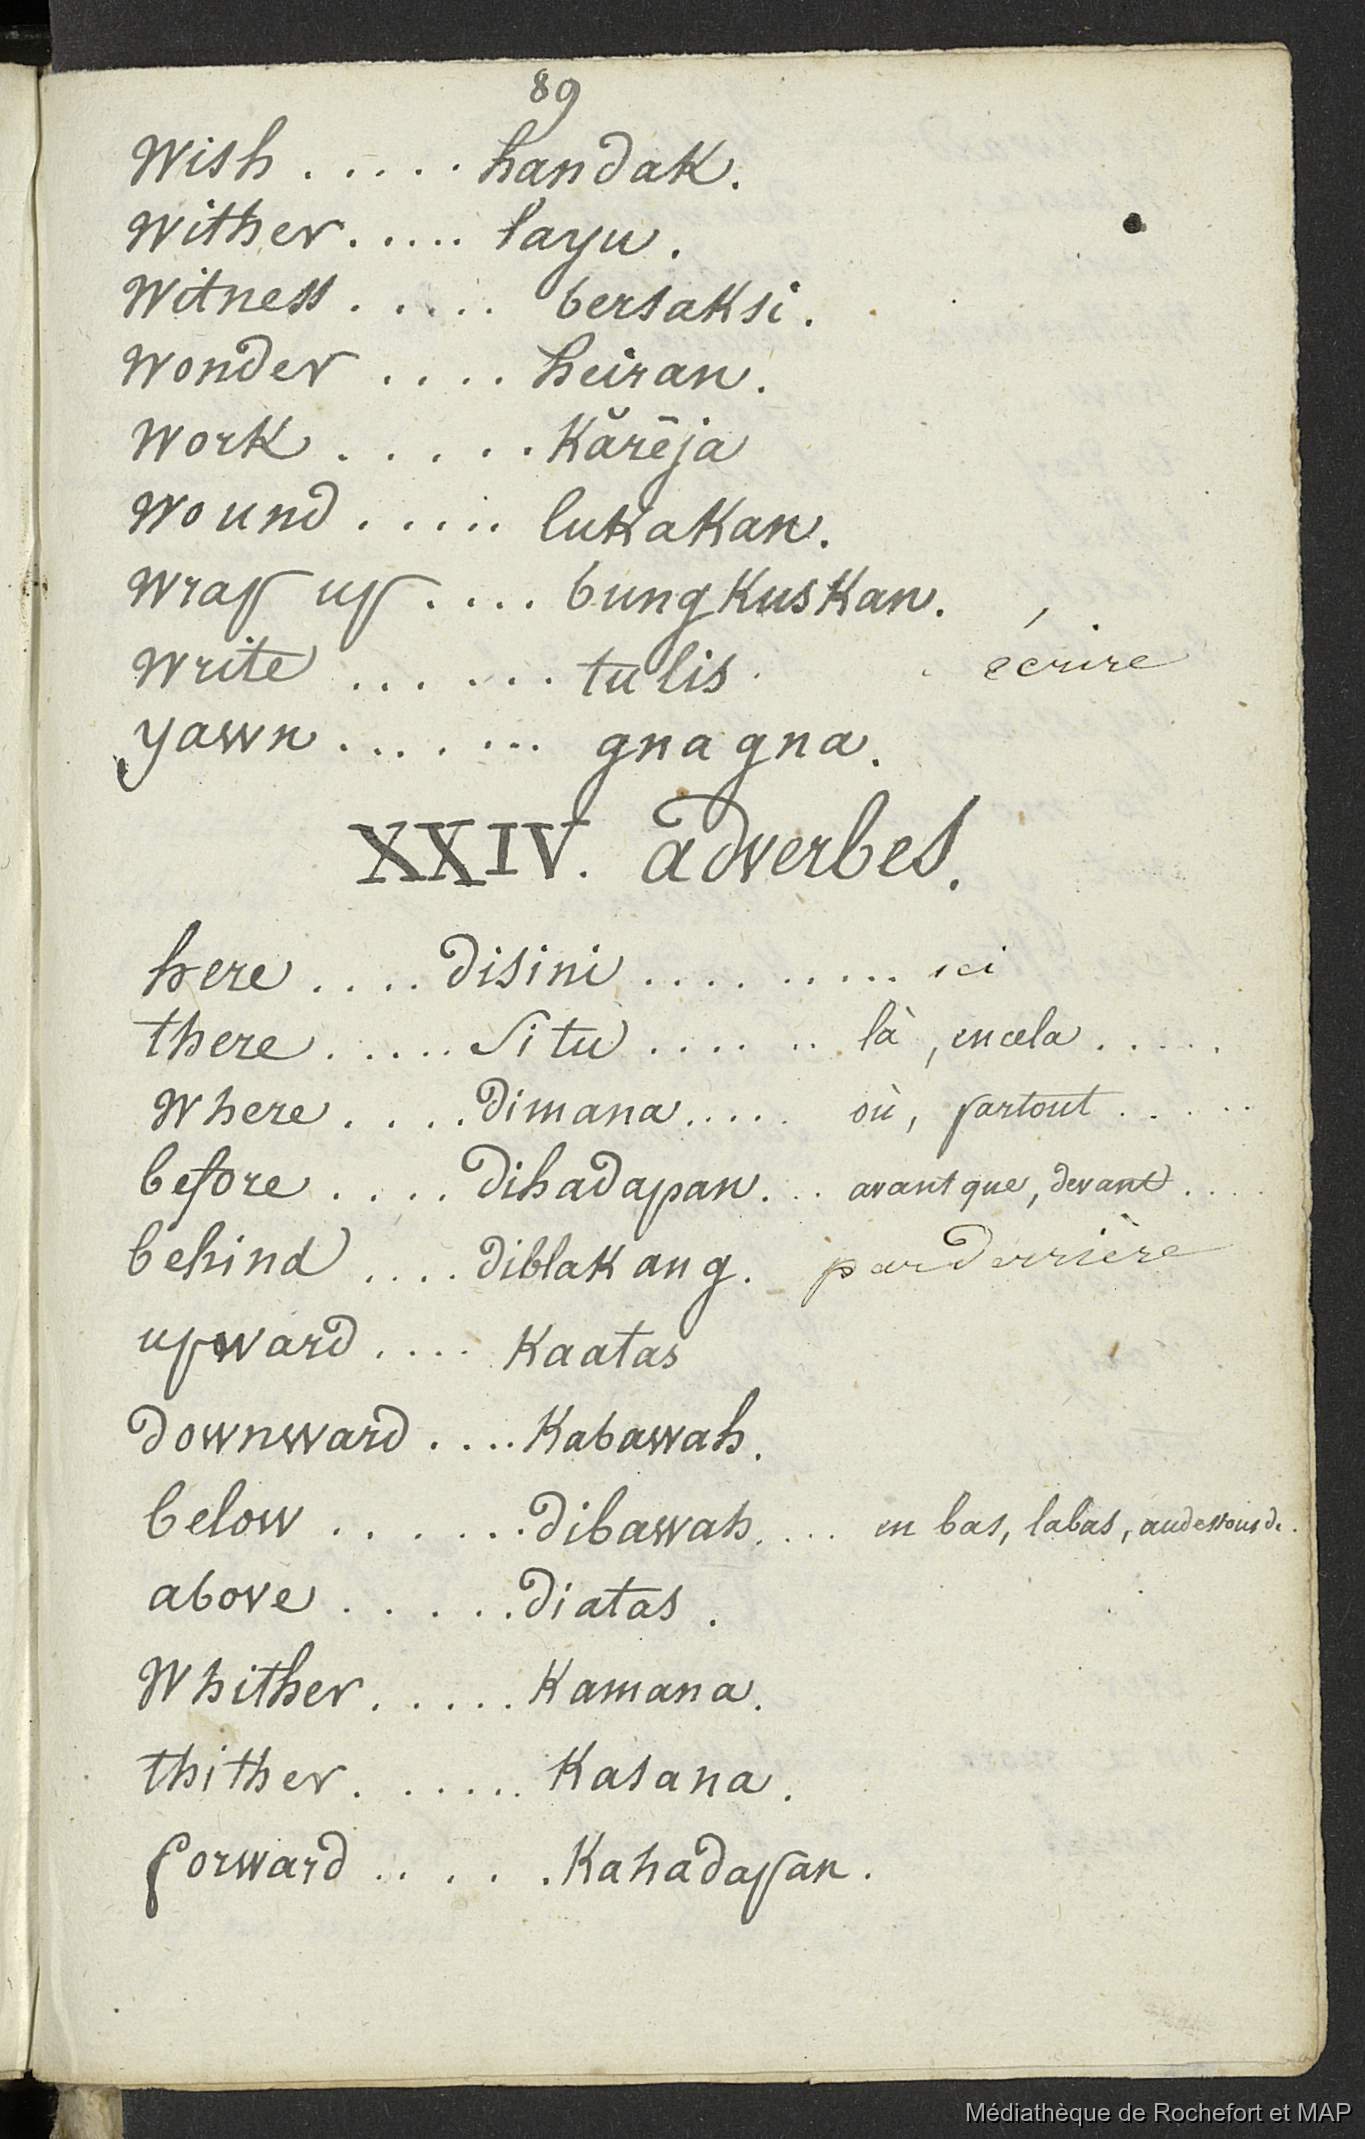 89
Wish . . . . . handak.
Wither. . . . . layu.
Witness . . . . . bersaksi.
Wonder . . . . heiran.
Work . . . . . Kărēja
Wound . . . . . lukakan.
Wrap up . . . . bungkuskan.
Write . . . . . . tulis. écrire
yawn . . . . . . . gnagna.
XXIV. adverbes.
here . . . . disini . . . . . . . . . ici
there . . . . . situ . . . . . . là, encela . . . . .
Where . . . . dimana . . . . . où, partout . . . . .
before . . . . dihadapan. . . avant que, devant . . . .
behind . . . . diblakang. par derrière
upward . . . . Kaatas
downward . . . . Kabawah.
below . . . . . . dibawah. . . . en bas, labas, audessous de.
above . . . . . diatas.
Whither. . . . . Kamana.
thither. . . . . . Kasana.
forward . . . . . Kahadapan.
Médiathèque de Rochefort et MAP